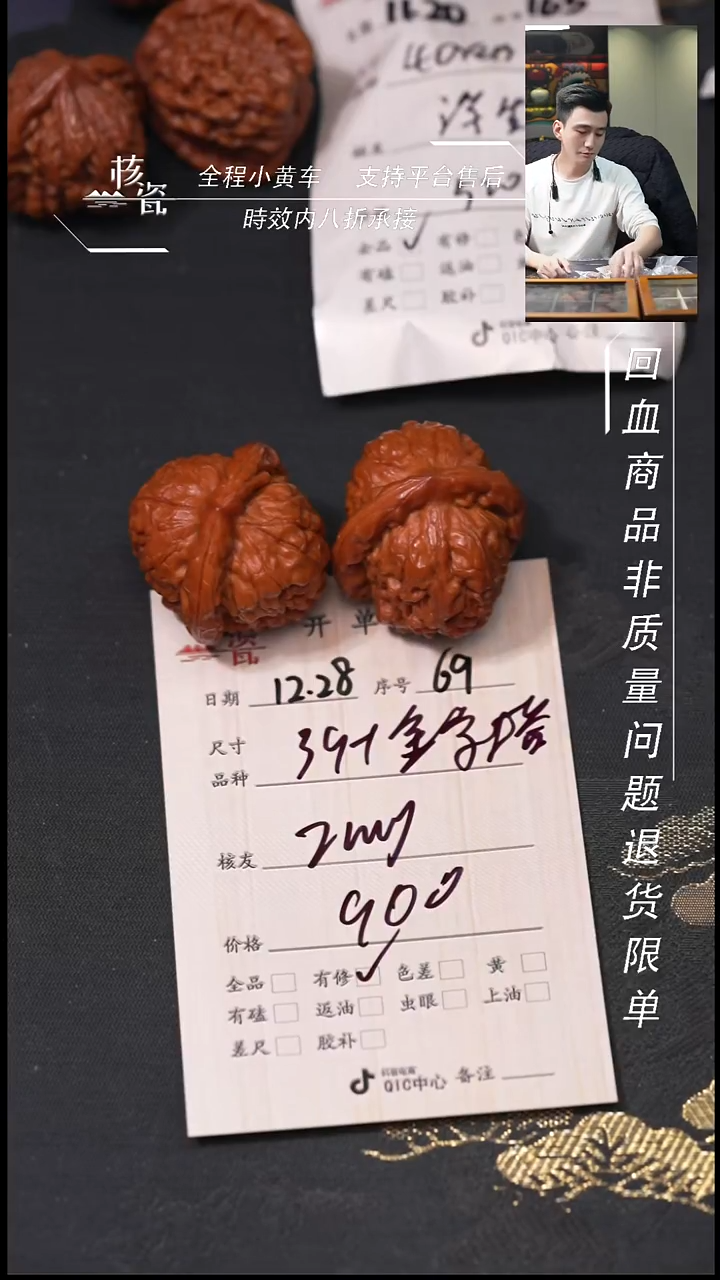 11.20
核瓷
全程小黄车 支持平台售后
時效内八折承接
500
全品 有修
有磕 返油
差尺 胶补
QIC中心
回血商品非质量问题退货限单
开单
日期 12.28 序号 69
尺寸
品种 39+金字塔
核友 zmy
价格 900
全品 有修 ✓ 色差 黄
有磕 返油 虫眼 上油
差尺 胶补
抖音电商
QIC中心 备注